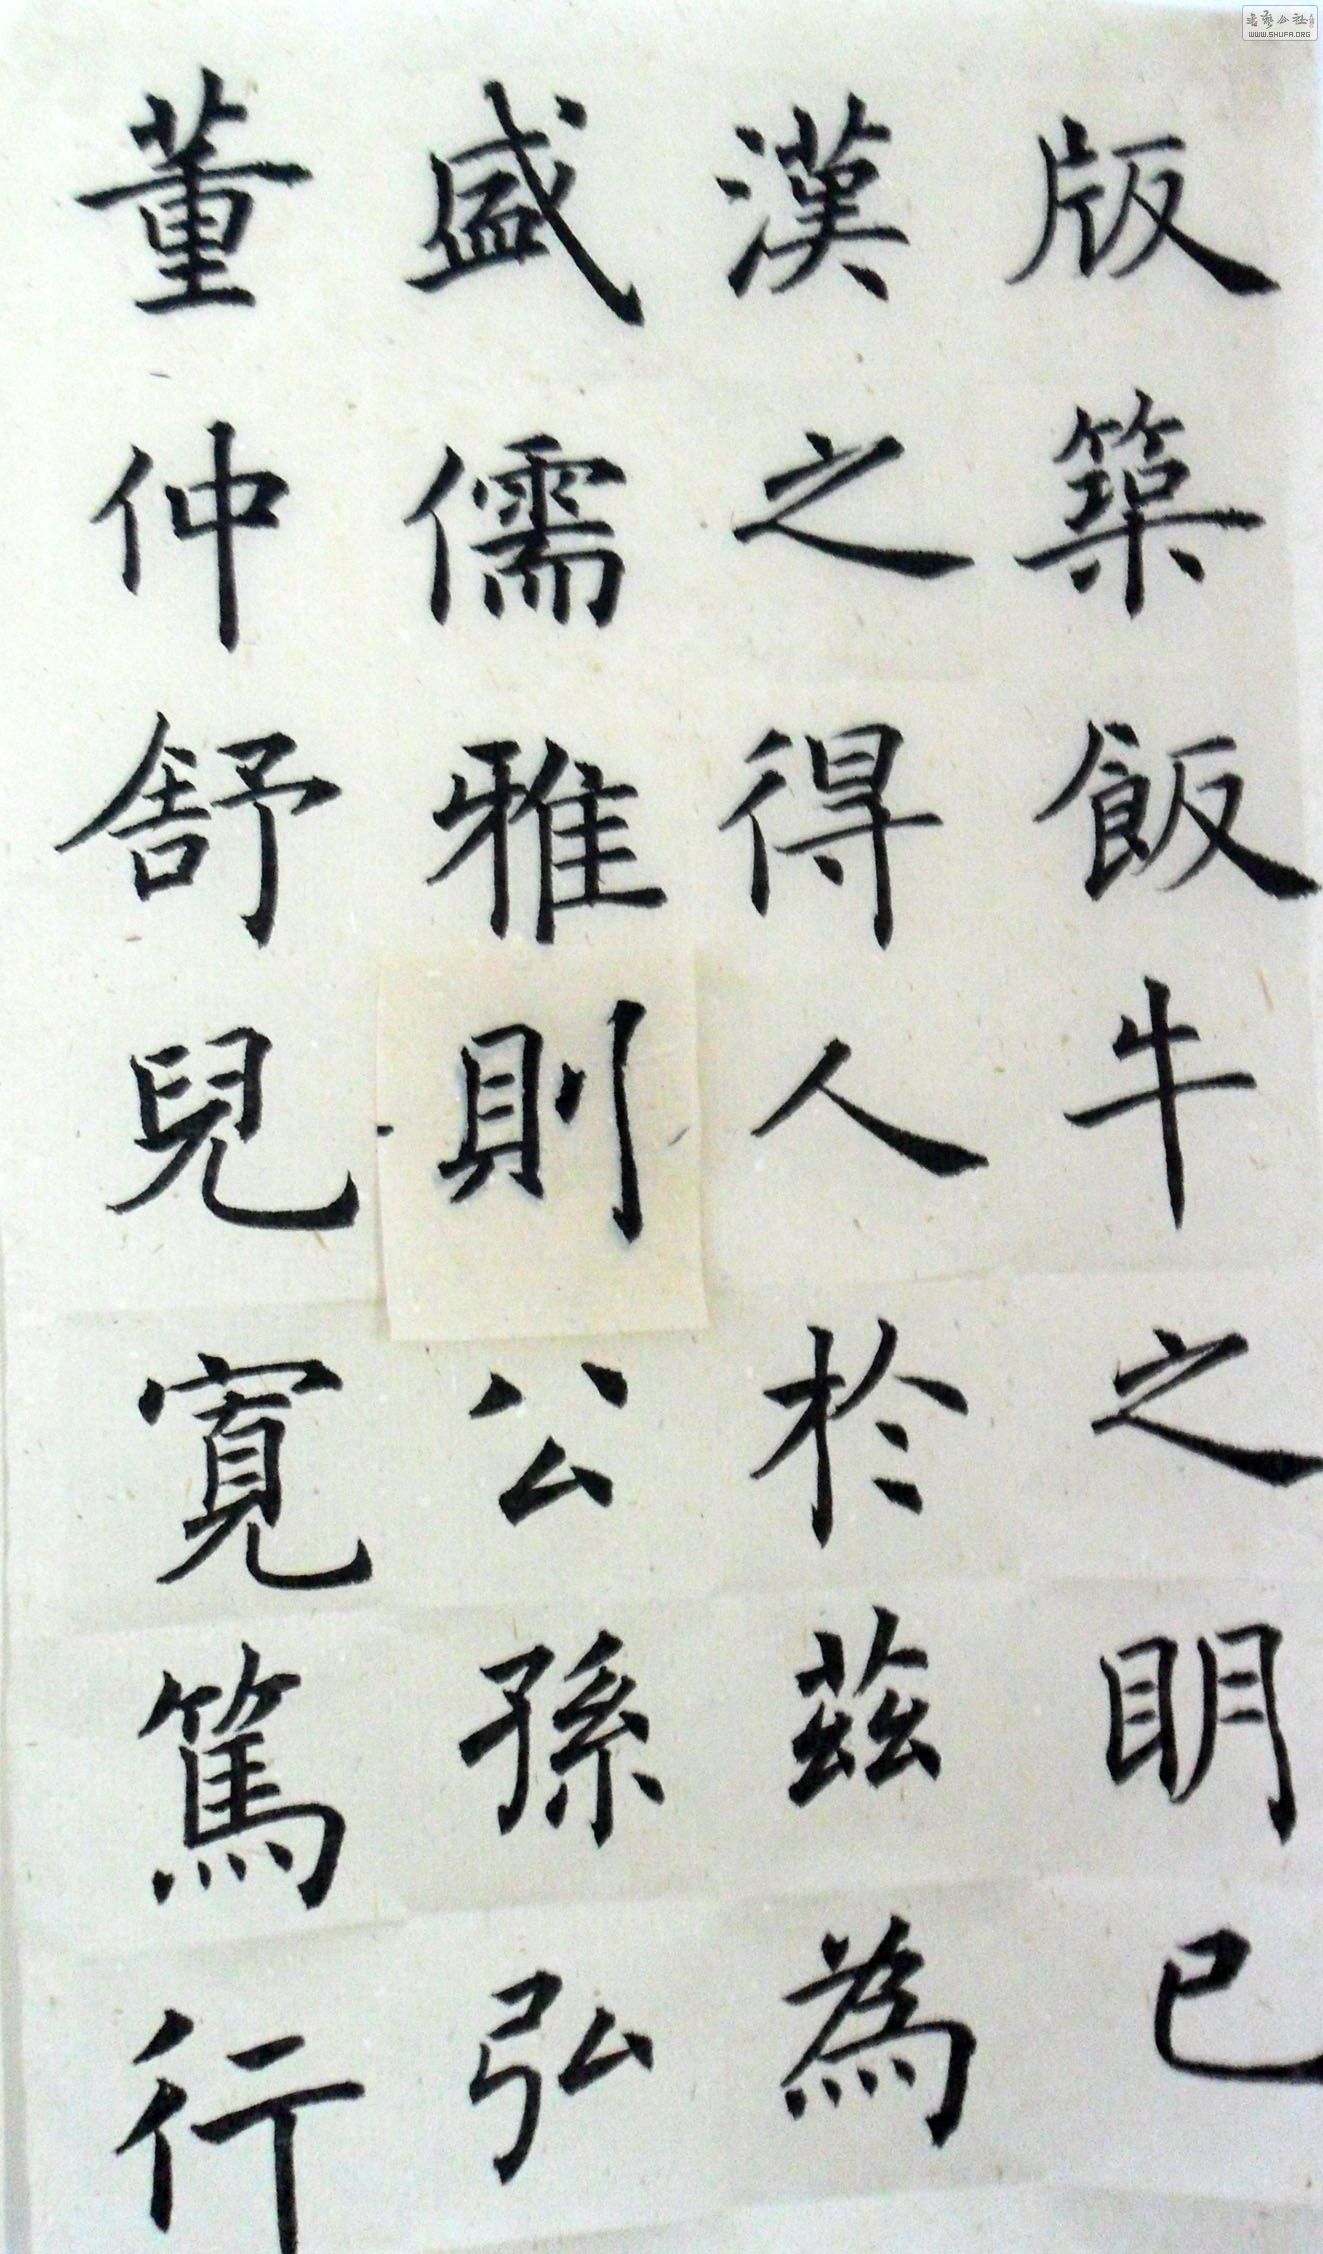 版築飯牛之明已
漢之得人於茲為
盛儒雅則公孫弘
董仲舒兒寬篤行
書藝公社
WWW.SHUFA.ORG